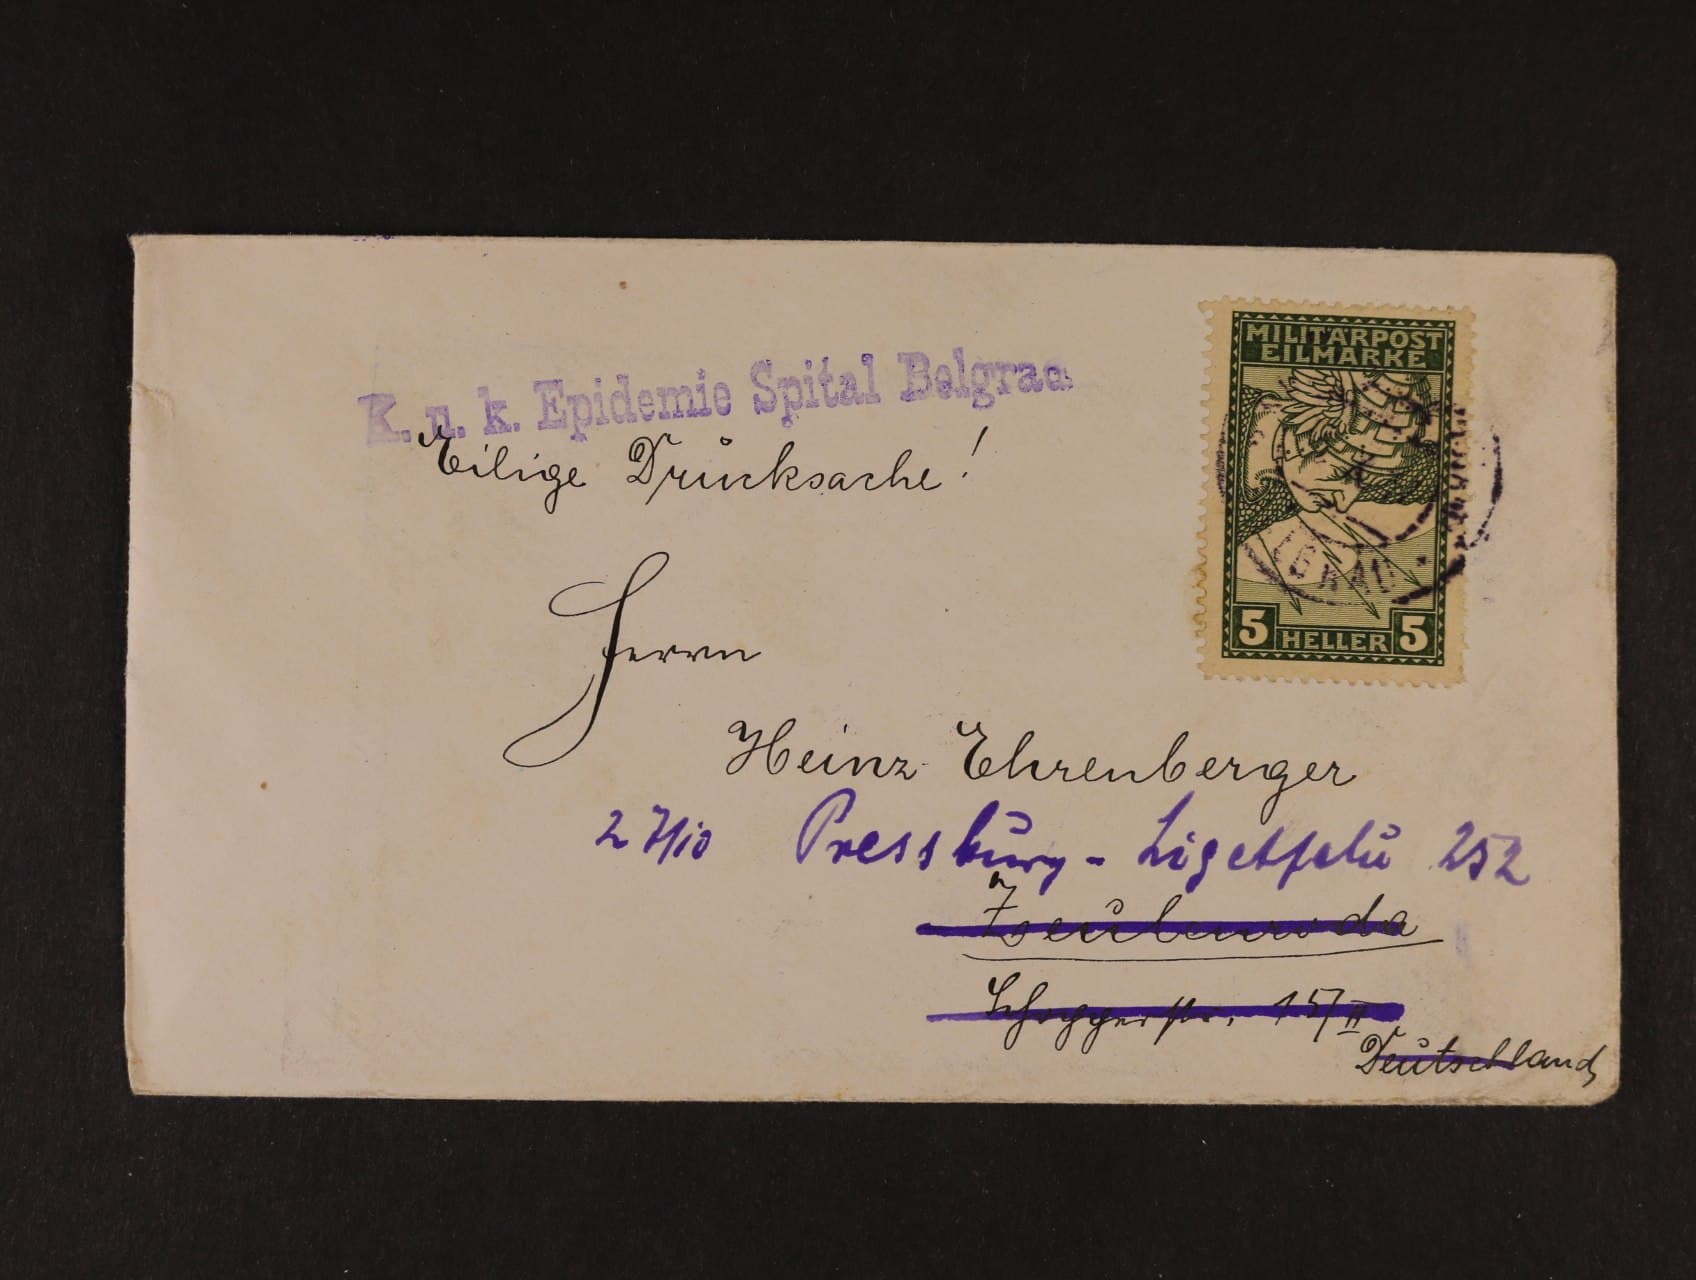 K. u. k. Epidemie Spital Belgrad
Eilige Drucksache!
MILITÄRPOST
EILMARKE
5 HELLER 5
Herrn
Heinz Ehrenberger
27/10 Pressburg - Ligetfalu 252
Zeulenroda
15/II
Deutschland